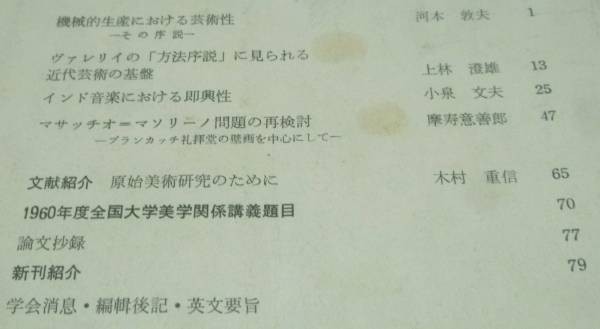 機械的生産における芸術性 河本 敦夫 1
―その序説―
ヴァレリイの「方法序説」に見られる
近代芸術の基盤 上林 澄雄 13
インド音楽における即興性 小泉 文夫 25
マサッチオ=マソリーノ問題の再検討 摩寿意善郎 47
―ブランカッチ礼拝堂の壁画を中心にして―
文献紹介 原始美術研究のために 木村 重信 65
1960年度全国大学美学関係講義題目 70
論文抄録 77
新刊紹介 79
学会消息・編輯後記・英文要旨